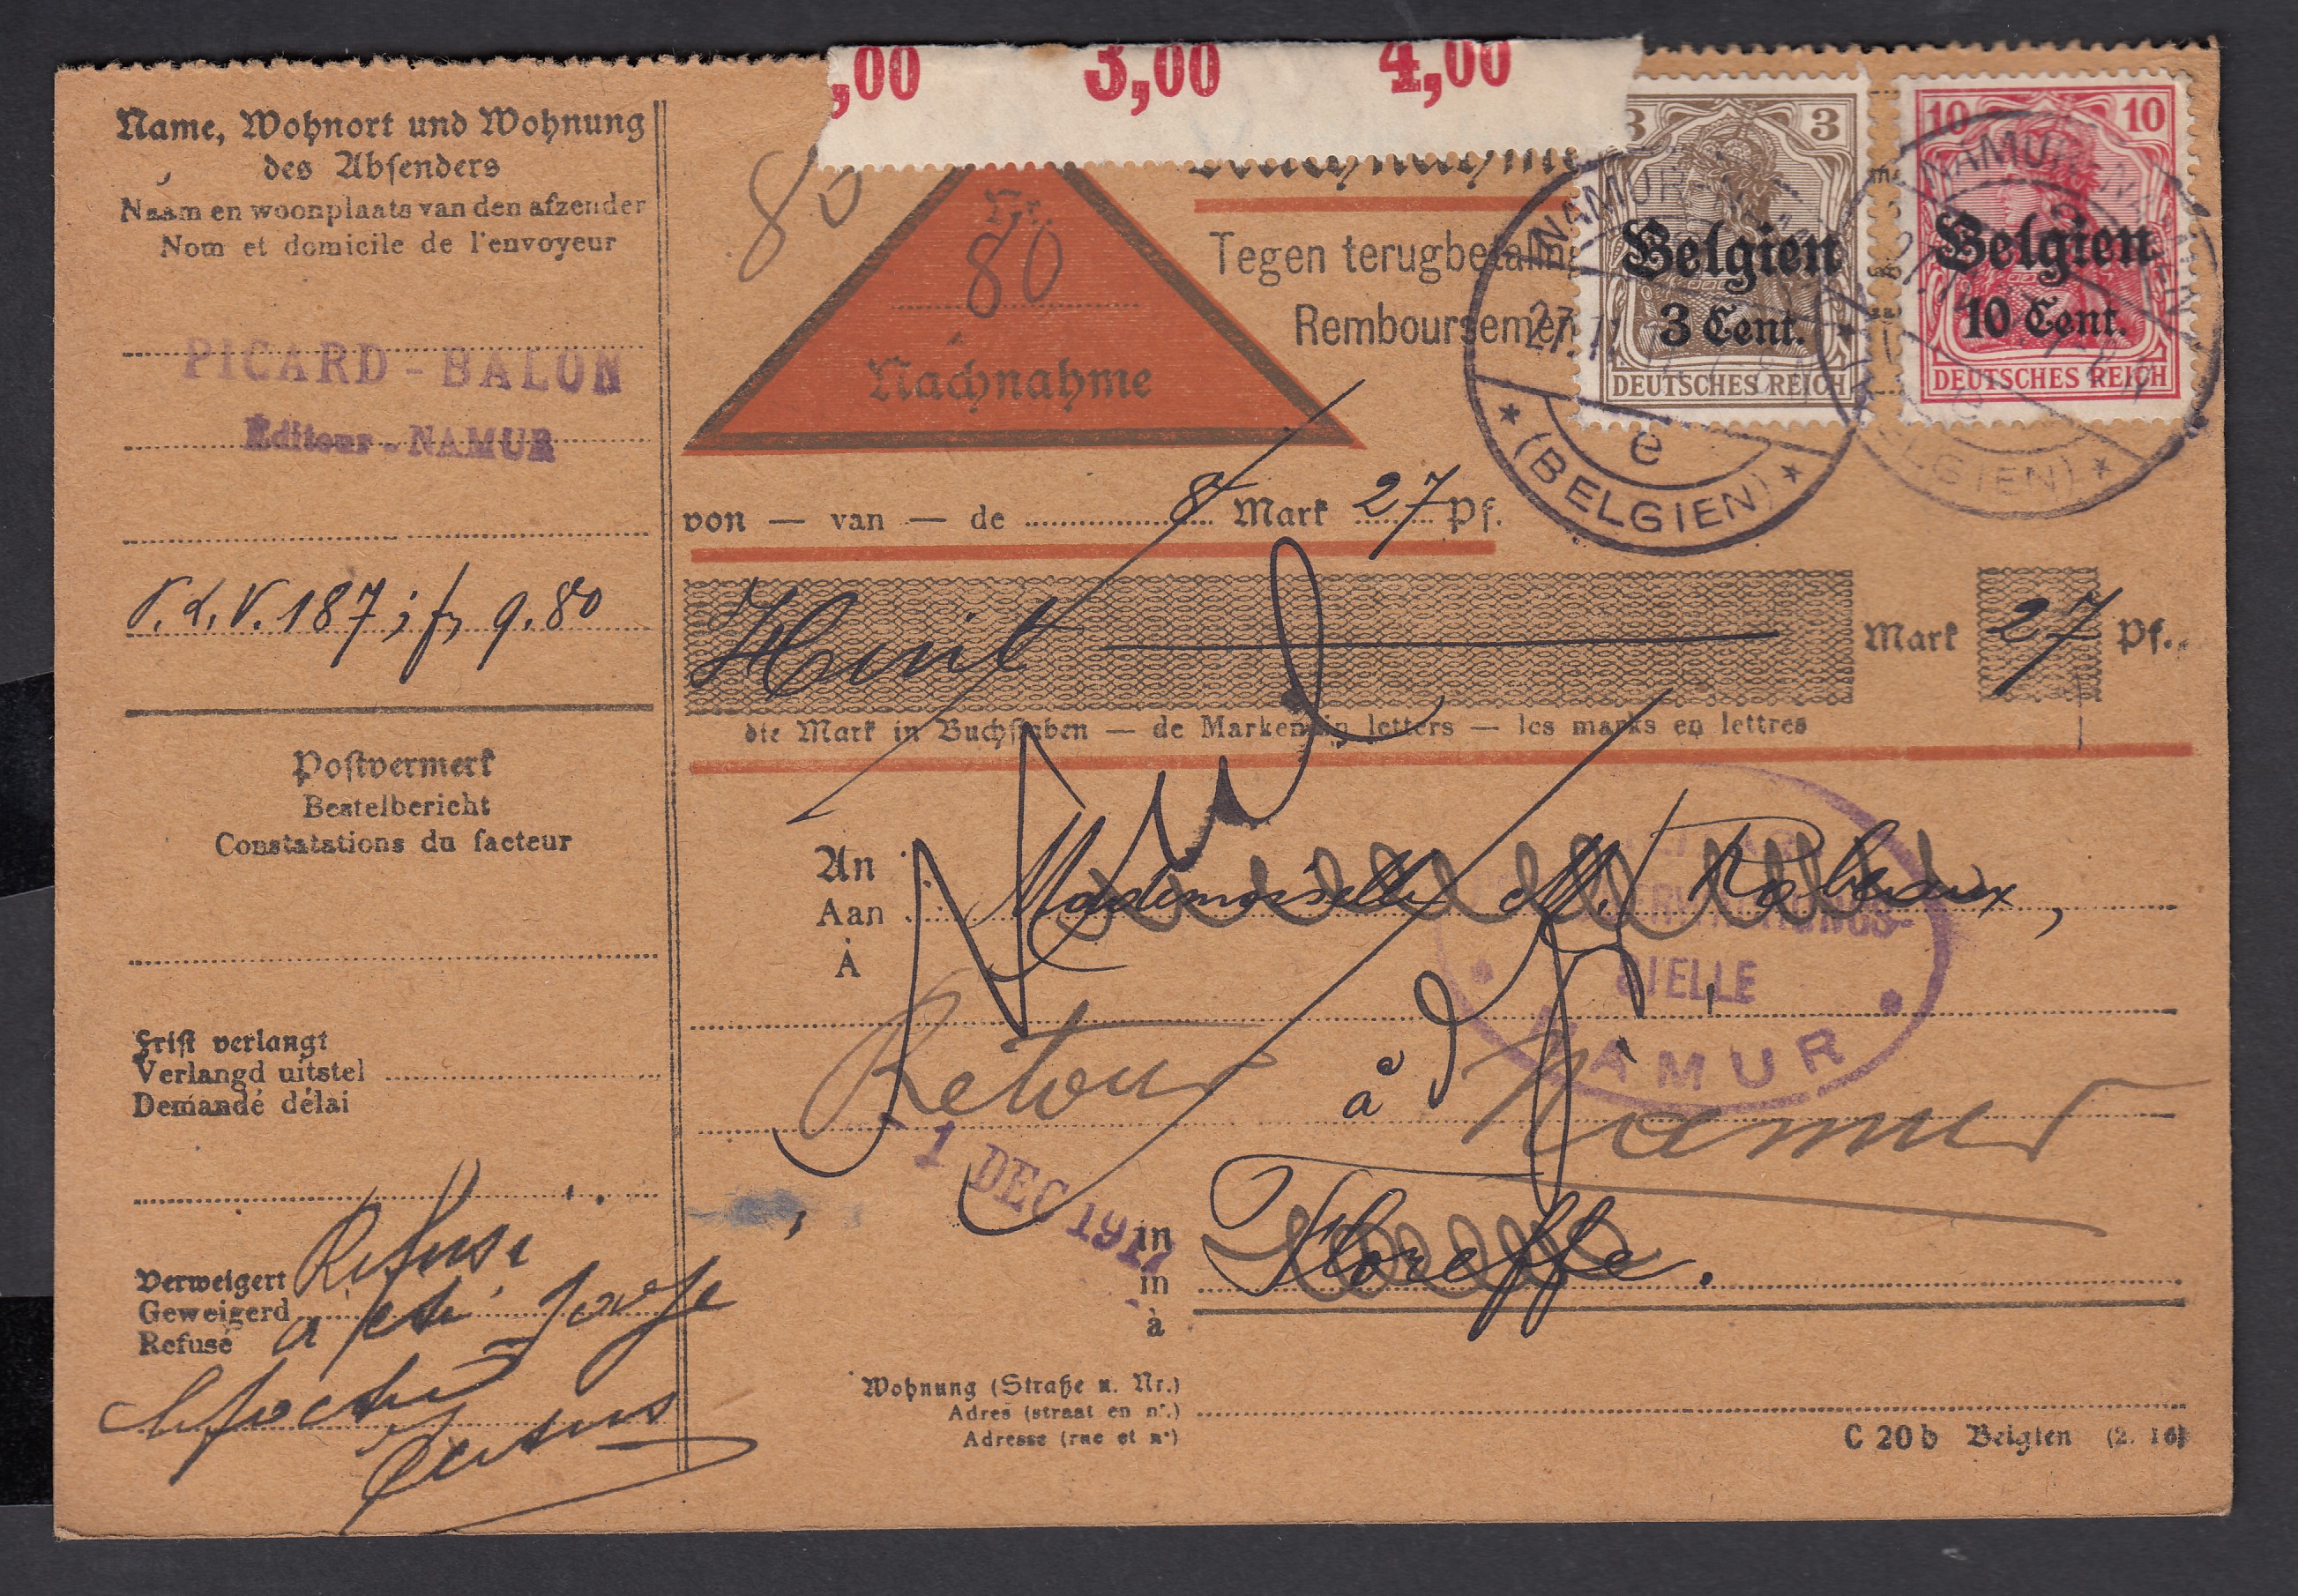 ,00 3,00 4,00
Name, Wohnort und Wohnung
des Absenders
Naam en woonplaats van den afzender
Nom et domicile de l'envoyeur
PICARD - BALON
Éditeur - NAMUR
187 ; fr 9.80
Postvermerk
Bestelbericht
Constatations du facteur
Frist verlangt
Verlangd uitstel
Demandé délai
Verweigert
Geweigerd
Refusé
Refusé
80
Nr.
80
Nachnahme
Nachnahme
Tegen terugbetaling
Remboursement
3 3
Belgien
3 Cent.
DEUTSCHES REICH
10 10
Belgien
10 Cent.
DEUTSCHES REICH
NAMUR
27.11
e
* (BELGIEN) *
NAMUR NAMEN
von — van — de 8 Mark 27 Pf.
Huit Mark 27 Pf.
die Mark in Buchstaben — de Marken in letters — les marks en lettres
An
Aan
À
Mademoiselle M. Robeaux,
STELLE
NAMUR
Retour à Namur
à
1 DEC 1917
in
in
à
Floreffe.
Wohnung (Straße u. Nr.)
Adres (straat en nr.)
Adresse (rue et nº)
C 20 b Belgien (2. 16)